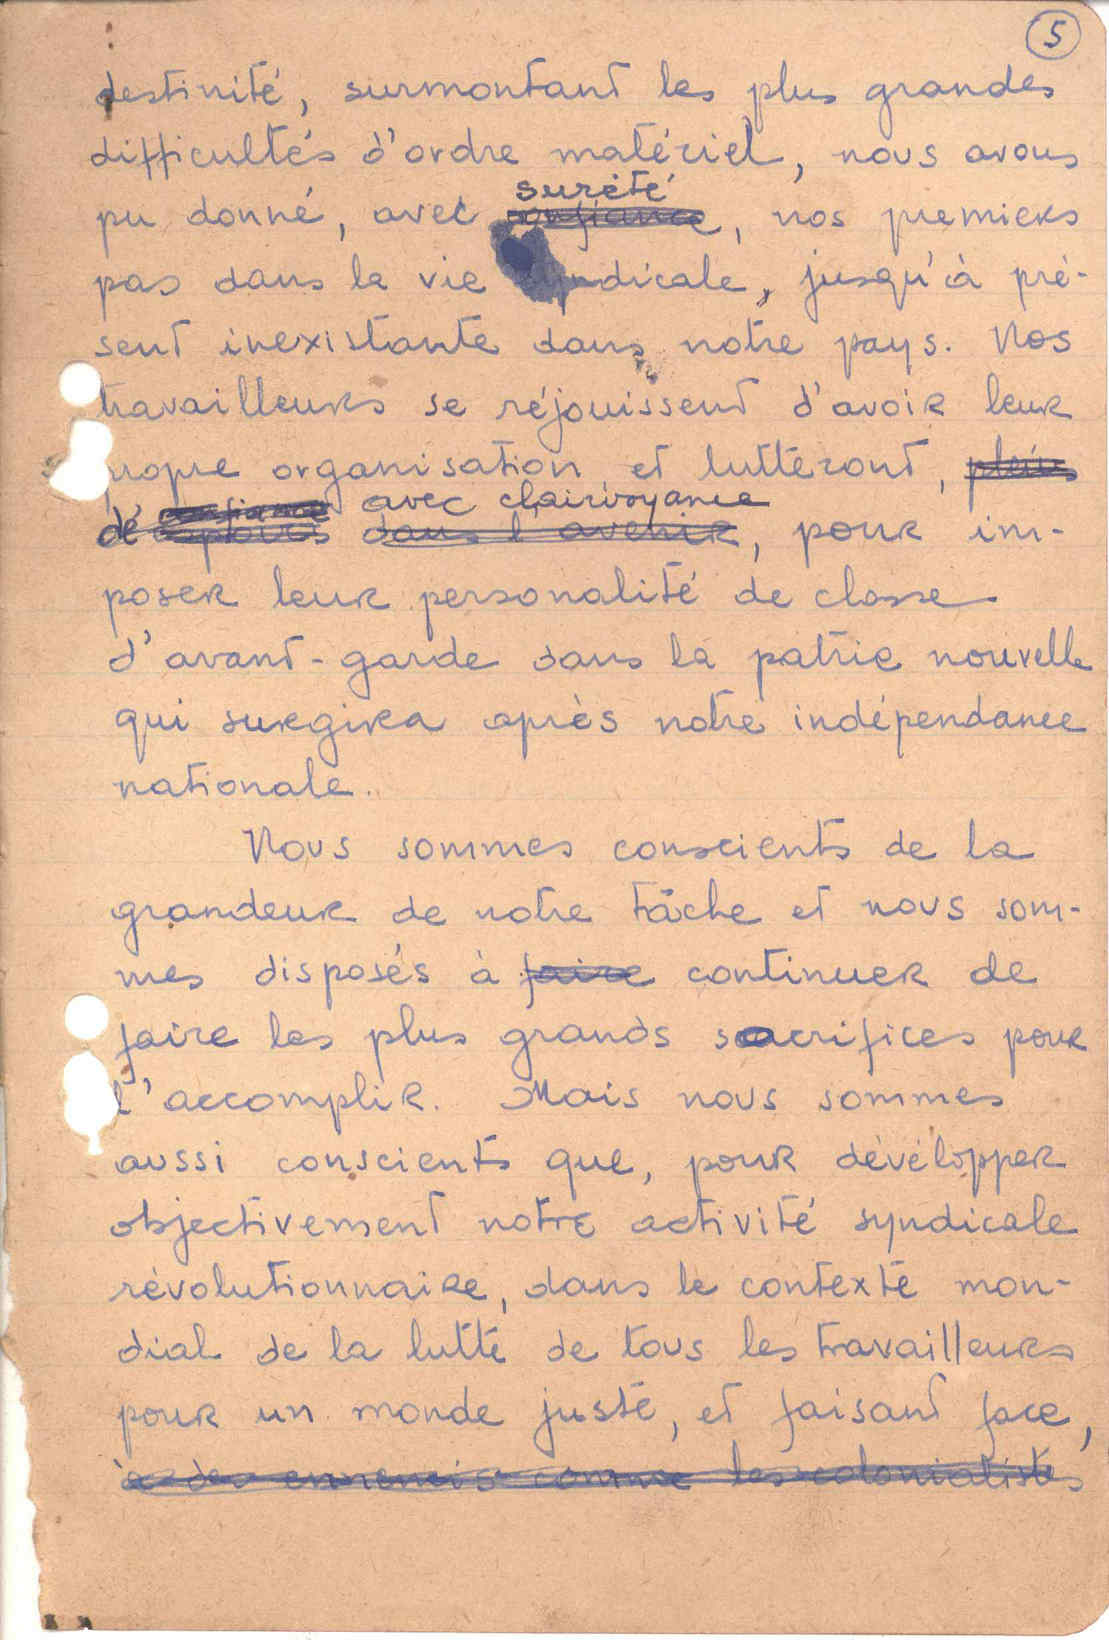 5
destinité, surmontant les plus grandes
difficultés d'ordre matériel, nous avons
sureté
pu donné, avec confiance, nos premiers
pas dans la vie syndicale, jusqu'à pré-
sent inexistante dans notre pays. Nos
travailleurs se réjouissent d'avoir leur
propre organisation et lutteront, pleins
confiance avec clairvoyance
de espoirs dans l'avenir, pour im-
poser leur personalité de classe
d'avant-garde dans la patrie nouvelle
qui surgira après notre indépendance
nationale.
Nous sommes conscients de la
grandeur de notre tâche et nous som-
mes disposés à faire continuer de
faire les plus grands sacrifices pour
l'accomplir. Mais nous sommes
aussi conscients que, pour dévélopper
objectivement notre activité syndicale
révolutionnaire, dans le contexte mon-
dial de la lutte de tous les travailleurs
pour un monde juste, et faisant face,
à des ennemis comme les colonialistes